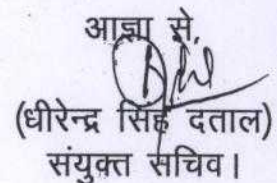 आज्ञा से,
(धीरेन्द्र सिंह दताल)
संयुक्त सचिव।